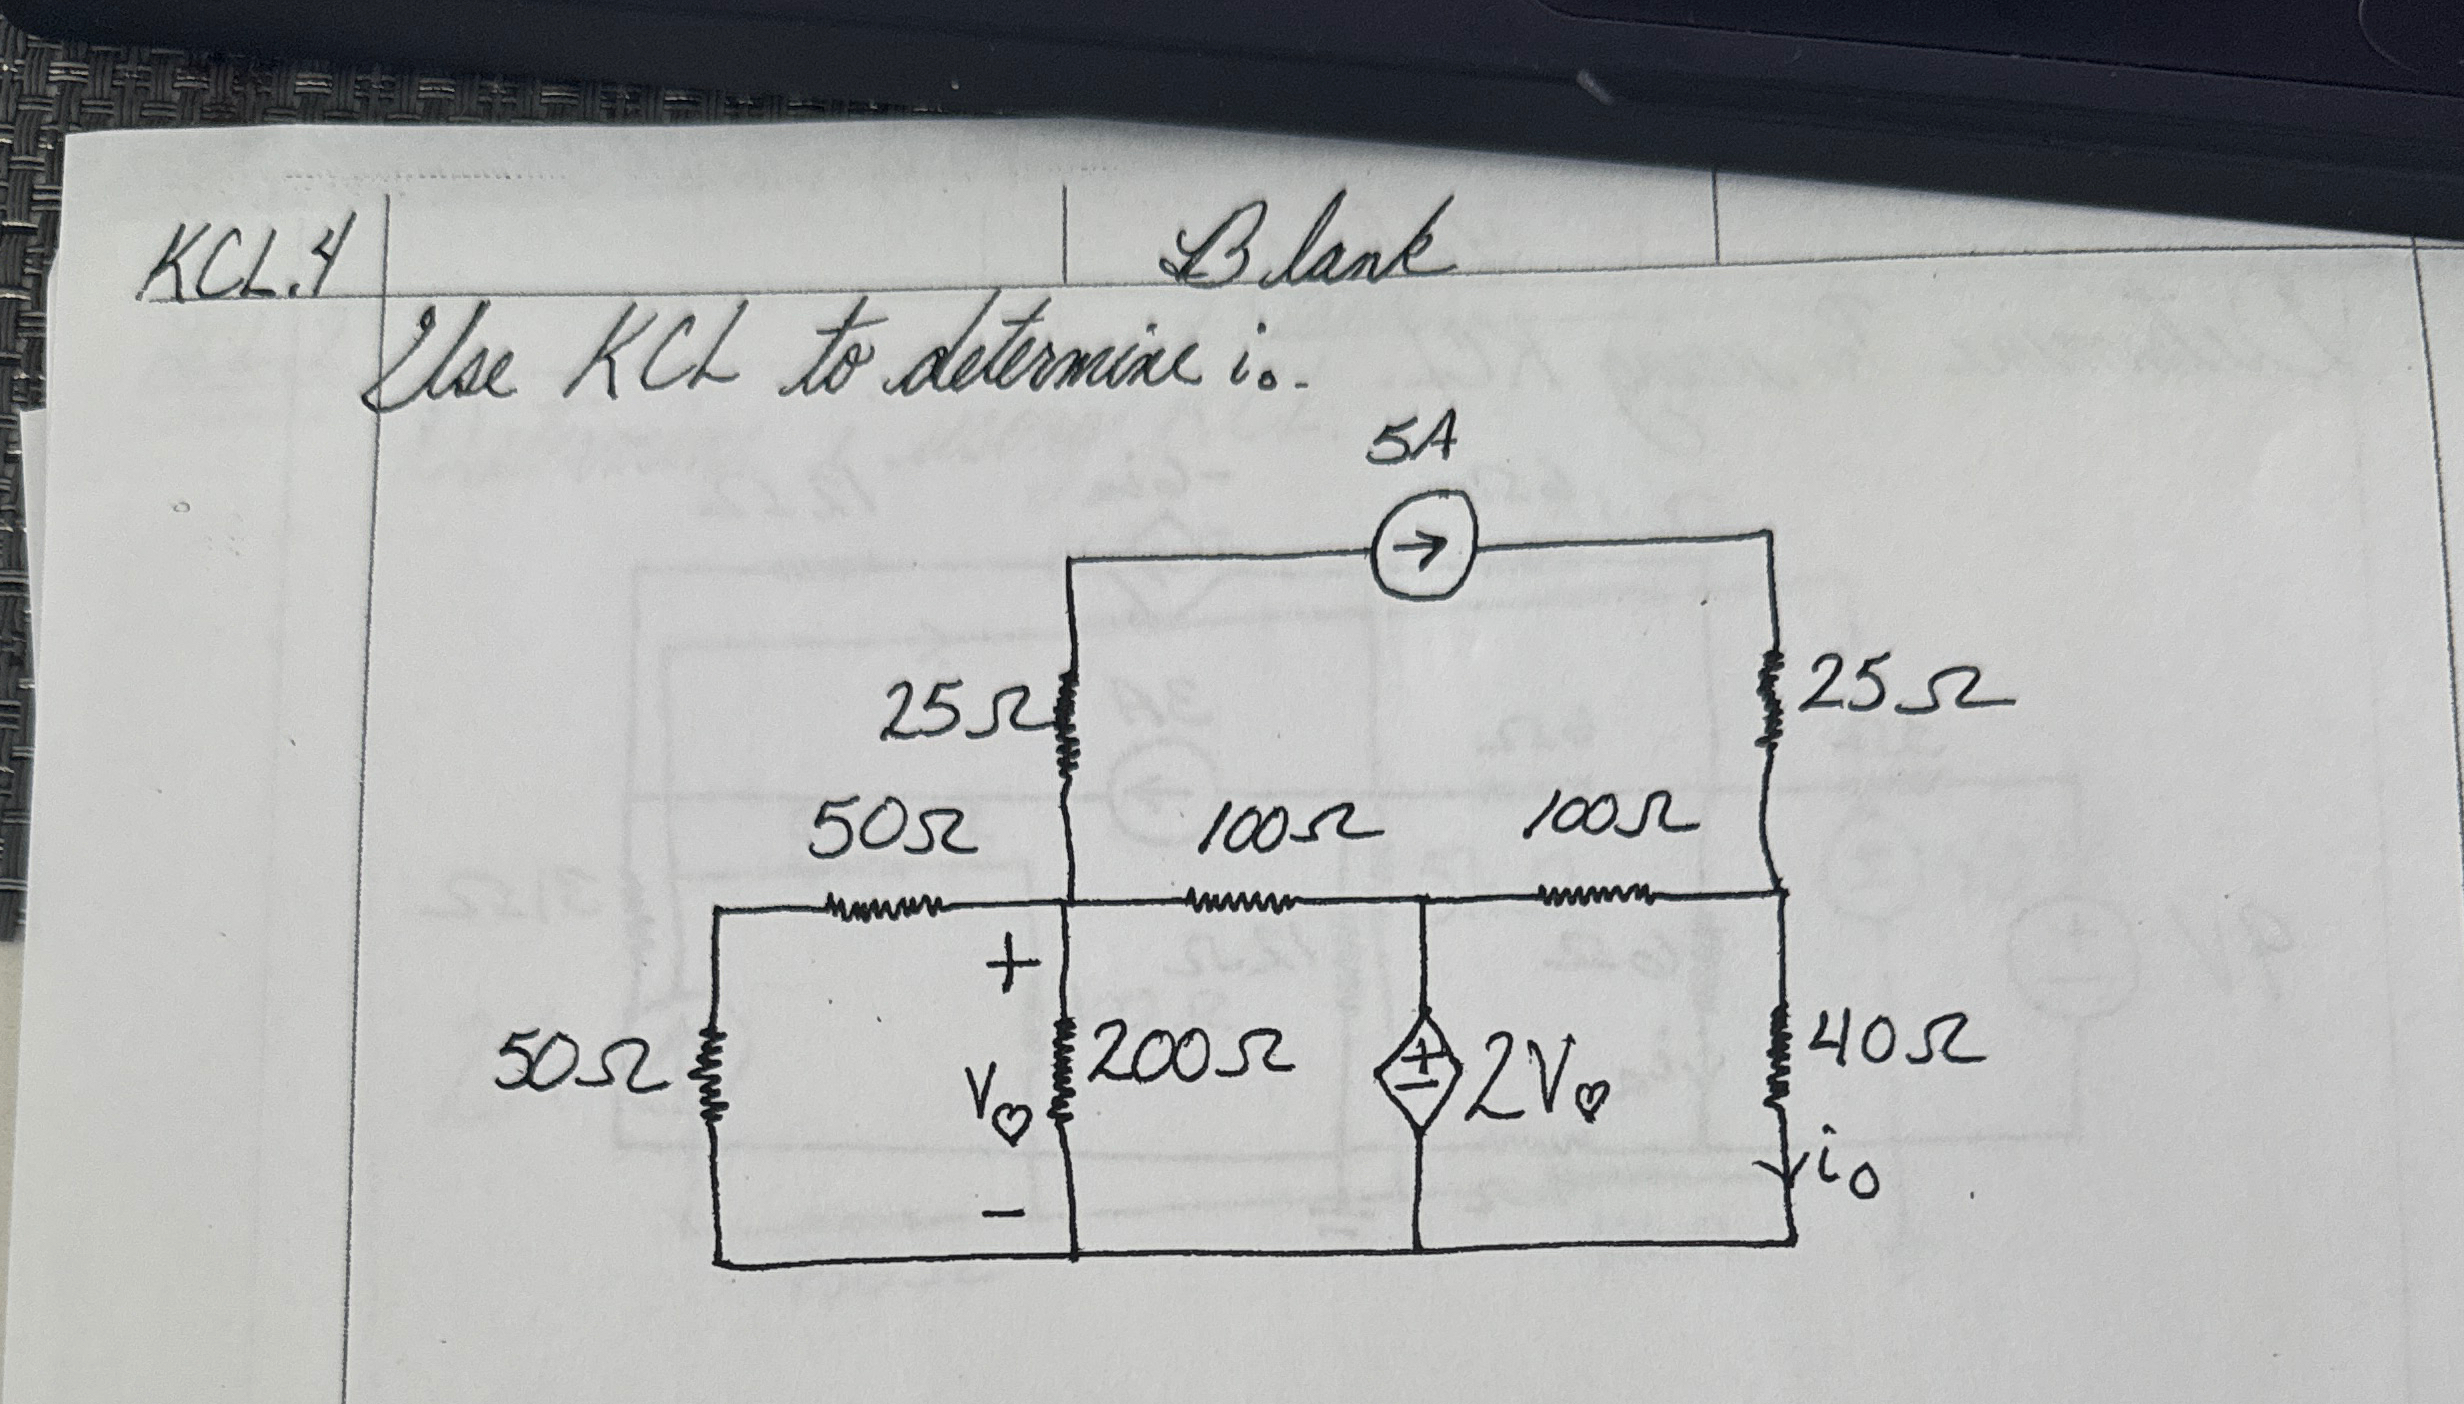 KCL.4
Blank
Use KCL to determine i₀.
5A
25Ω
25Ω
50Ω
100Ω
100Ω
+
50Ω
V♡
200Ω
+
−
2V♡
40Ω
i₀
−